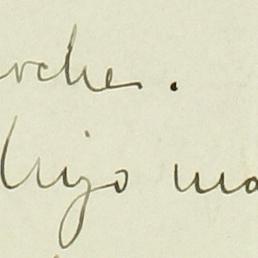 rche.
hijo ma